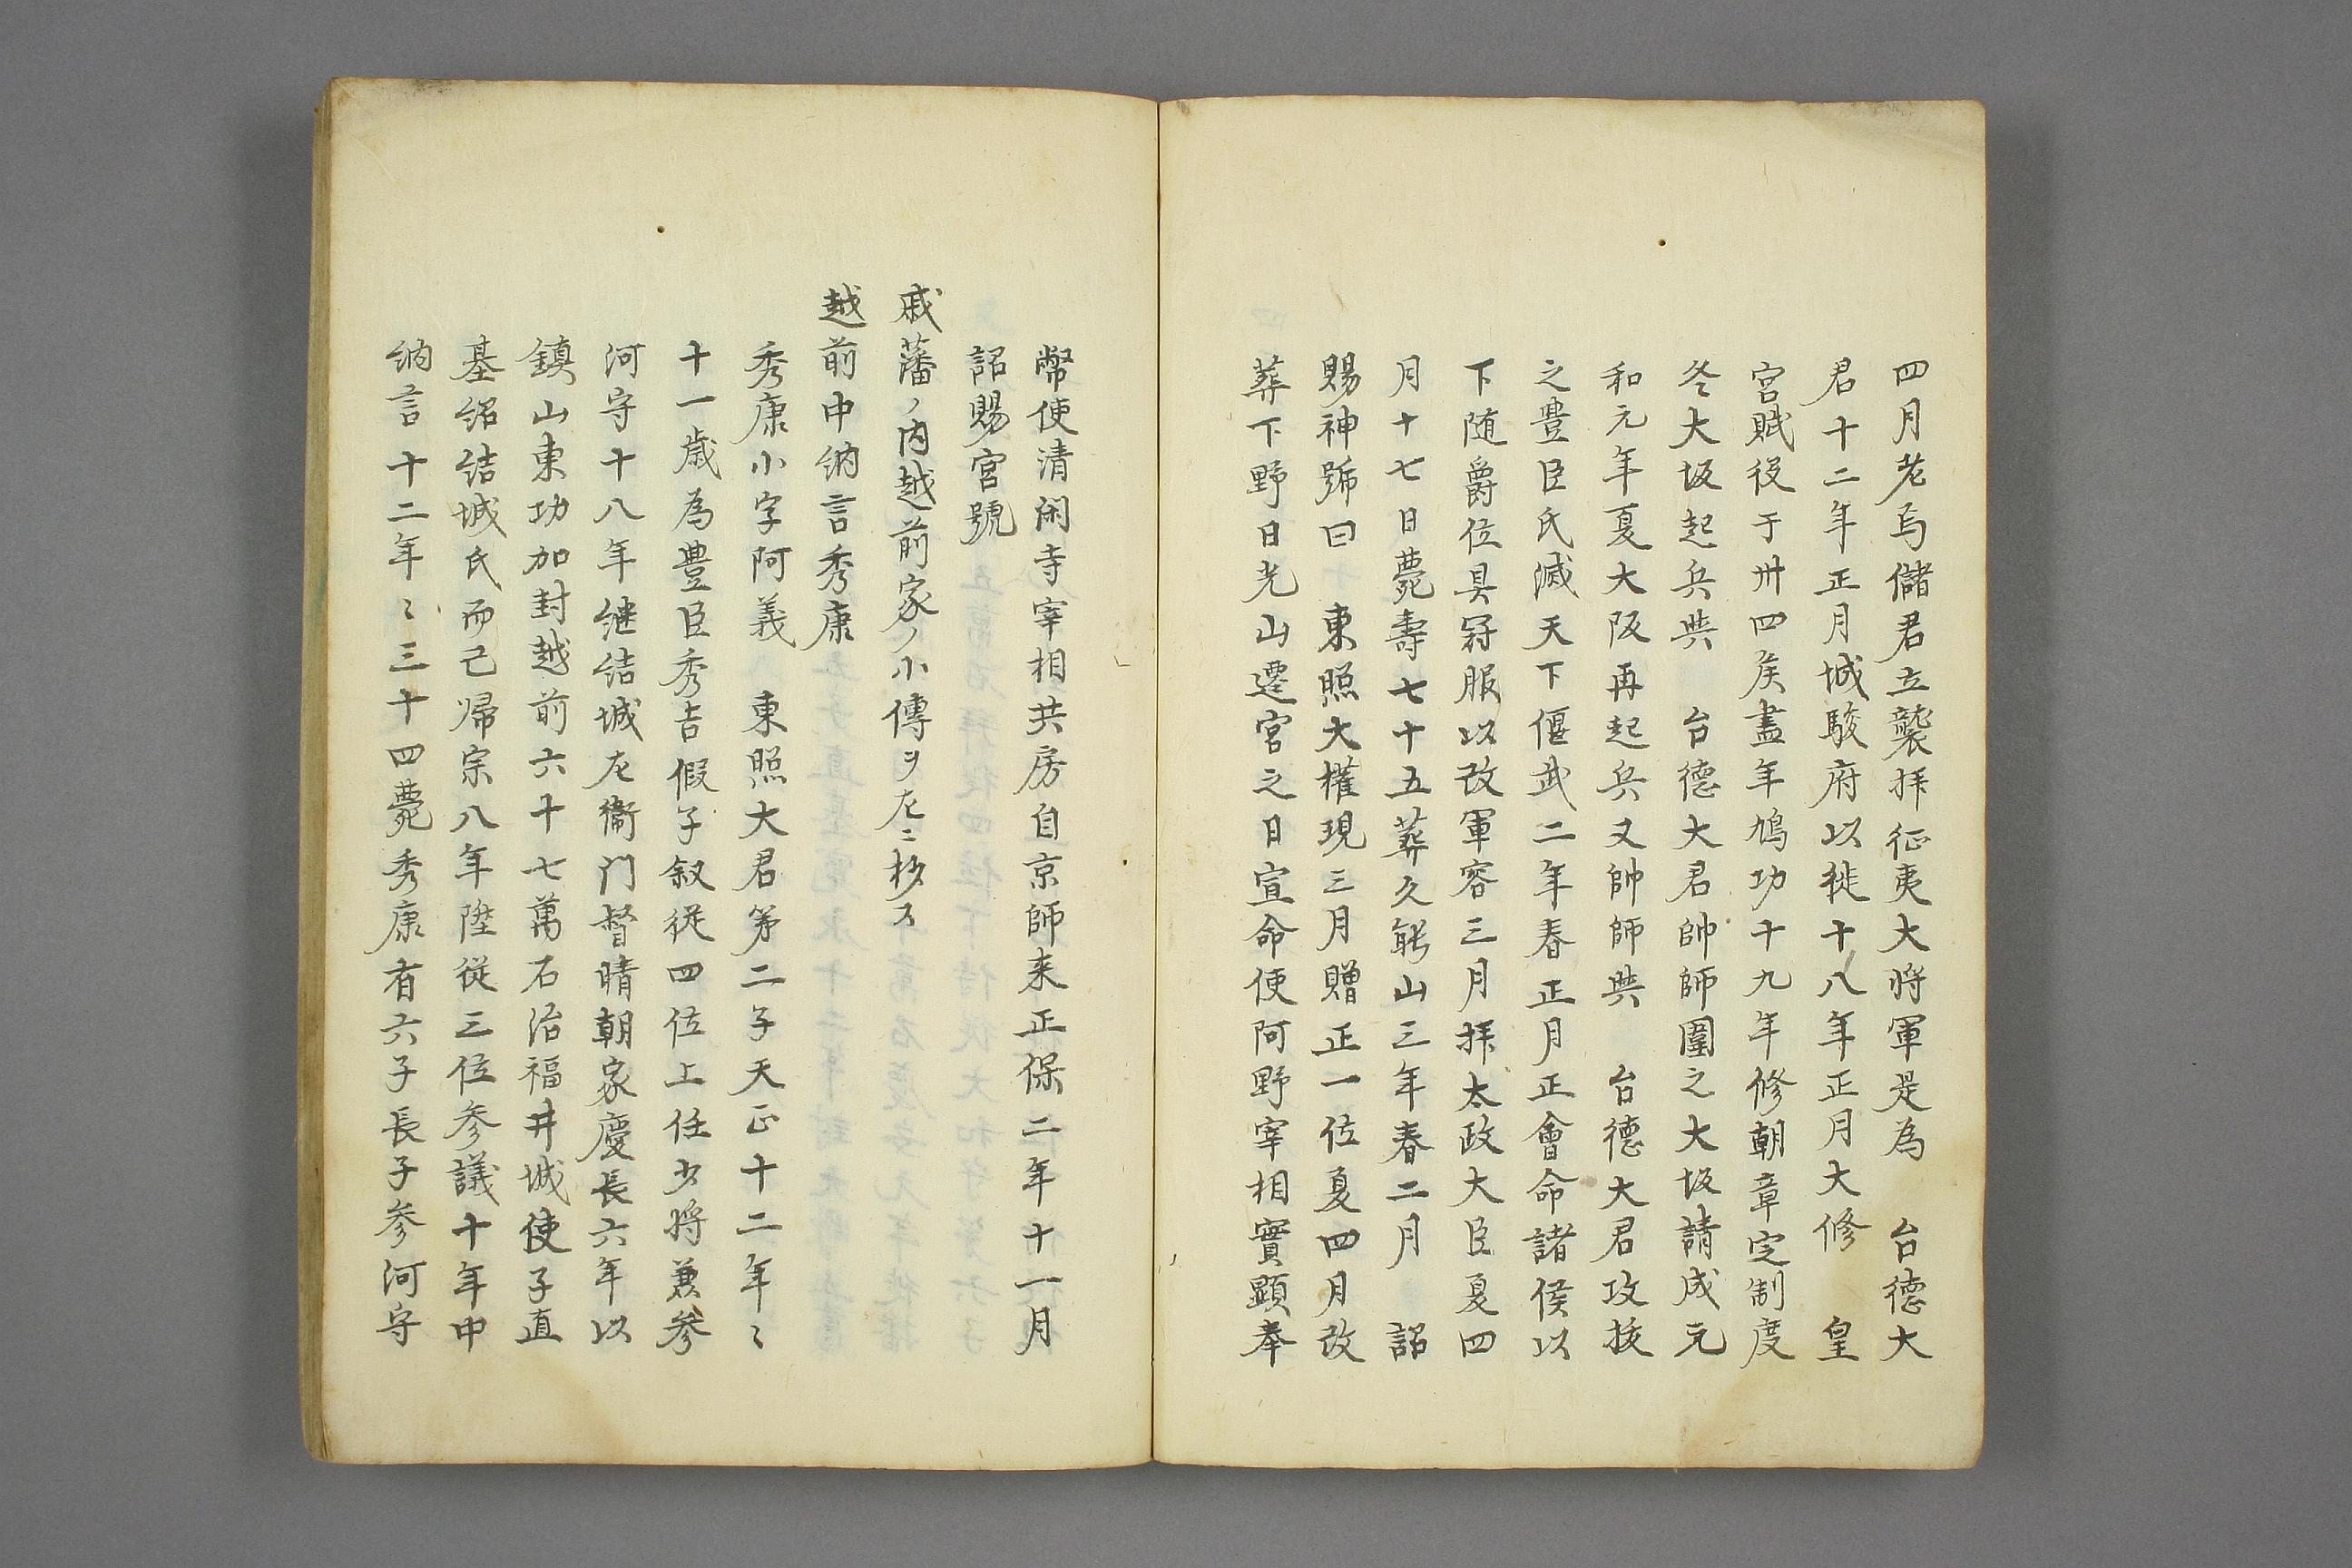 四月老焉儲君立襲拝征夷大将軍是為　台德大
君十二年正月城駿府以徙十八年正月大修　皇
宮賦役于卅四矦盡年鳩功十九年修朝章定制度
冬大坂起兵與　台德大君帥師圍之大坂請成元
和元年夏大阪再起兵又帥師與　台德大君攻拔
之豊臣氏滅天下偃武二年春正月正會命諸侯以
下随爵位具冠服以改軍容三月拝太政大臣夏四
月十七日薨壽七十五葬久能山三年春二月　詔
賜神號曰　東照大權現三月贈正一位夏四月改
葬下野日光山遷宮之日宣命使阿野宰相實顕奉
幣使清閑寺宰相共房自京師来正保二年十一月
詔賜宮號
戚藩ノ内越前家ノ小傳ヲ左ニ抄ス
越前中納言秀康
秀康小字阿義　東照大君第二子天正十二年〻
十一歳為豊臣秀吉假子叙從四位上任少将兼参
河守十八年継結城左衞門督晴朝家慶長六年以
鎮山東功加封越前六十七萬石治福井城使子直
基紹結城氏而己帰宗八年陞從三位参議十年中
納言十二年〻三十四薨秀康有六子長子参河守